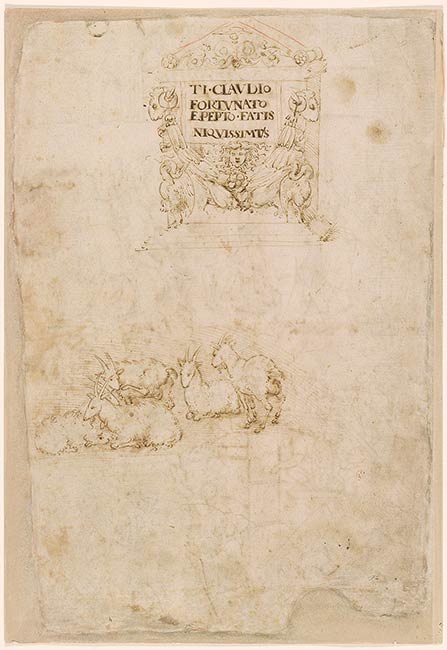 TI·CLAVDIO
FORTVNATO
EREPTO·FATIS
NIQVISSIMIS